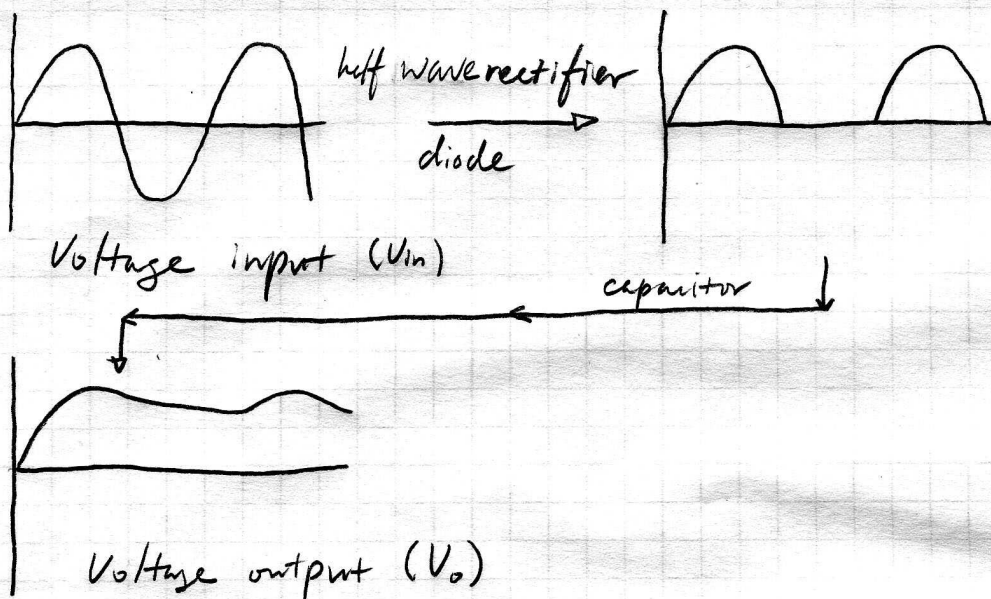 half wave rectifier
diode
Voltage input (Vin)
capacitor
Voltage output (Vo)